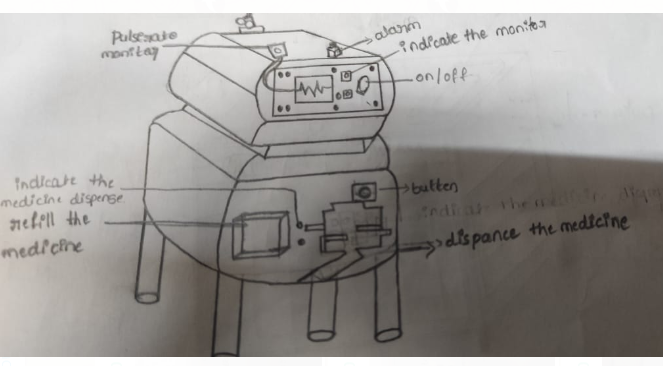 Pulserate
monitor
alarm
indicate the monitor
on/off
indicate the
medicine dispense
refill the
medicine
button
dispance the medicine